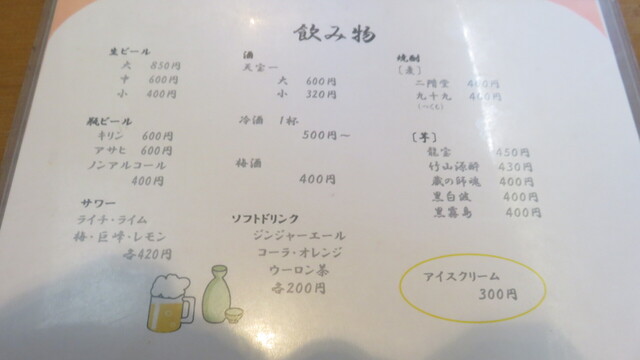 飲み物
生ビール
大 850円
中 600円
小 400円
瓶ビール
キリン 600円
アサヒ 600円
ノンアルコール
400円
サワー
ライチ・ライム
梅・巨峰・レモン
各420円
酒
天宝一
大 600円
小 320円
冷酒 1杯
500円~
梅酒
400円
ソフトドリンク
ジンジャーエール
コーラ・オレンジ
ウーロン茶
各200円
焼酎
[麦]
二階堂 400円
九十九 400円
(つくも)
[芋]
龍宝 450円
竹山源酔 430円
蔵の師魂 400円
黒白波 400円
黒霧島 400円
アイスクリーム
300円